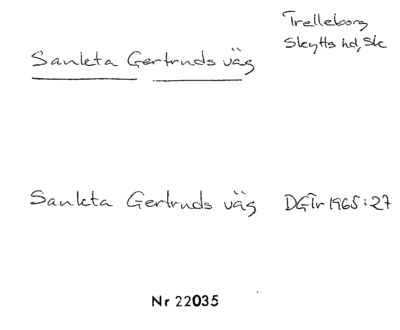 Trelleborg
Skytts hd, Sk
Sankta Gertruds väg
Sankta Gertruds väg DGTr 1965:27
Nr 22035